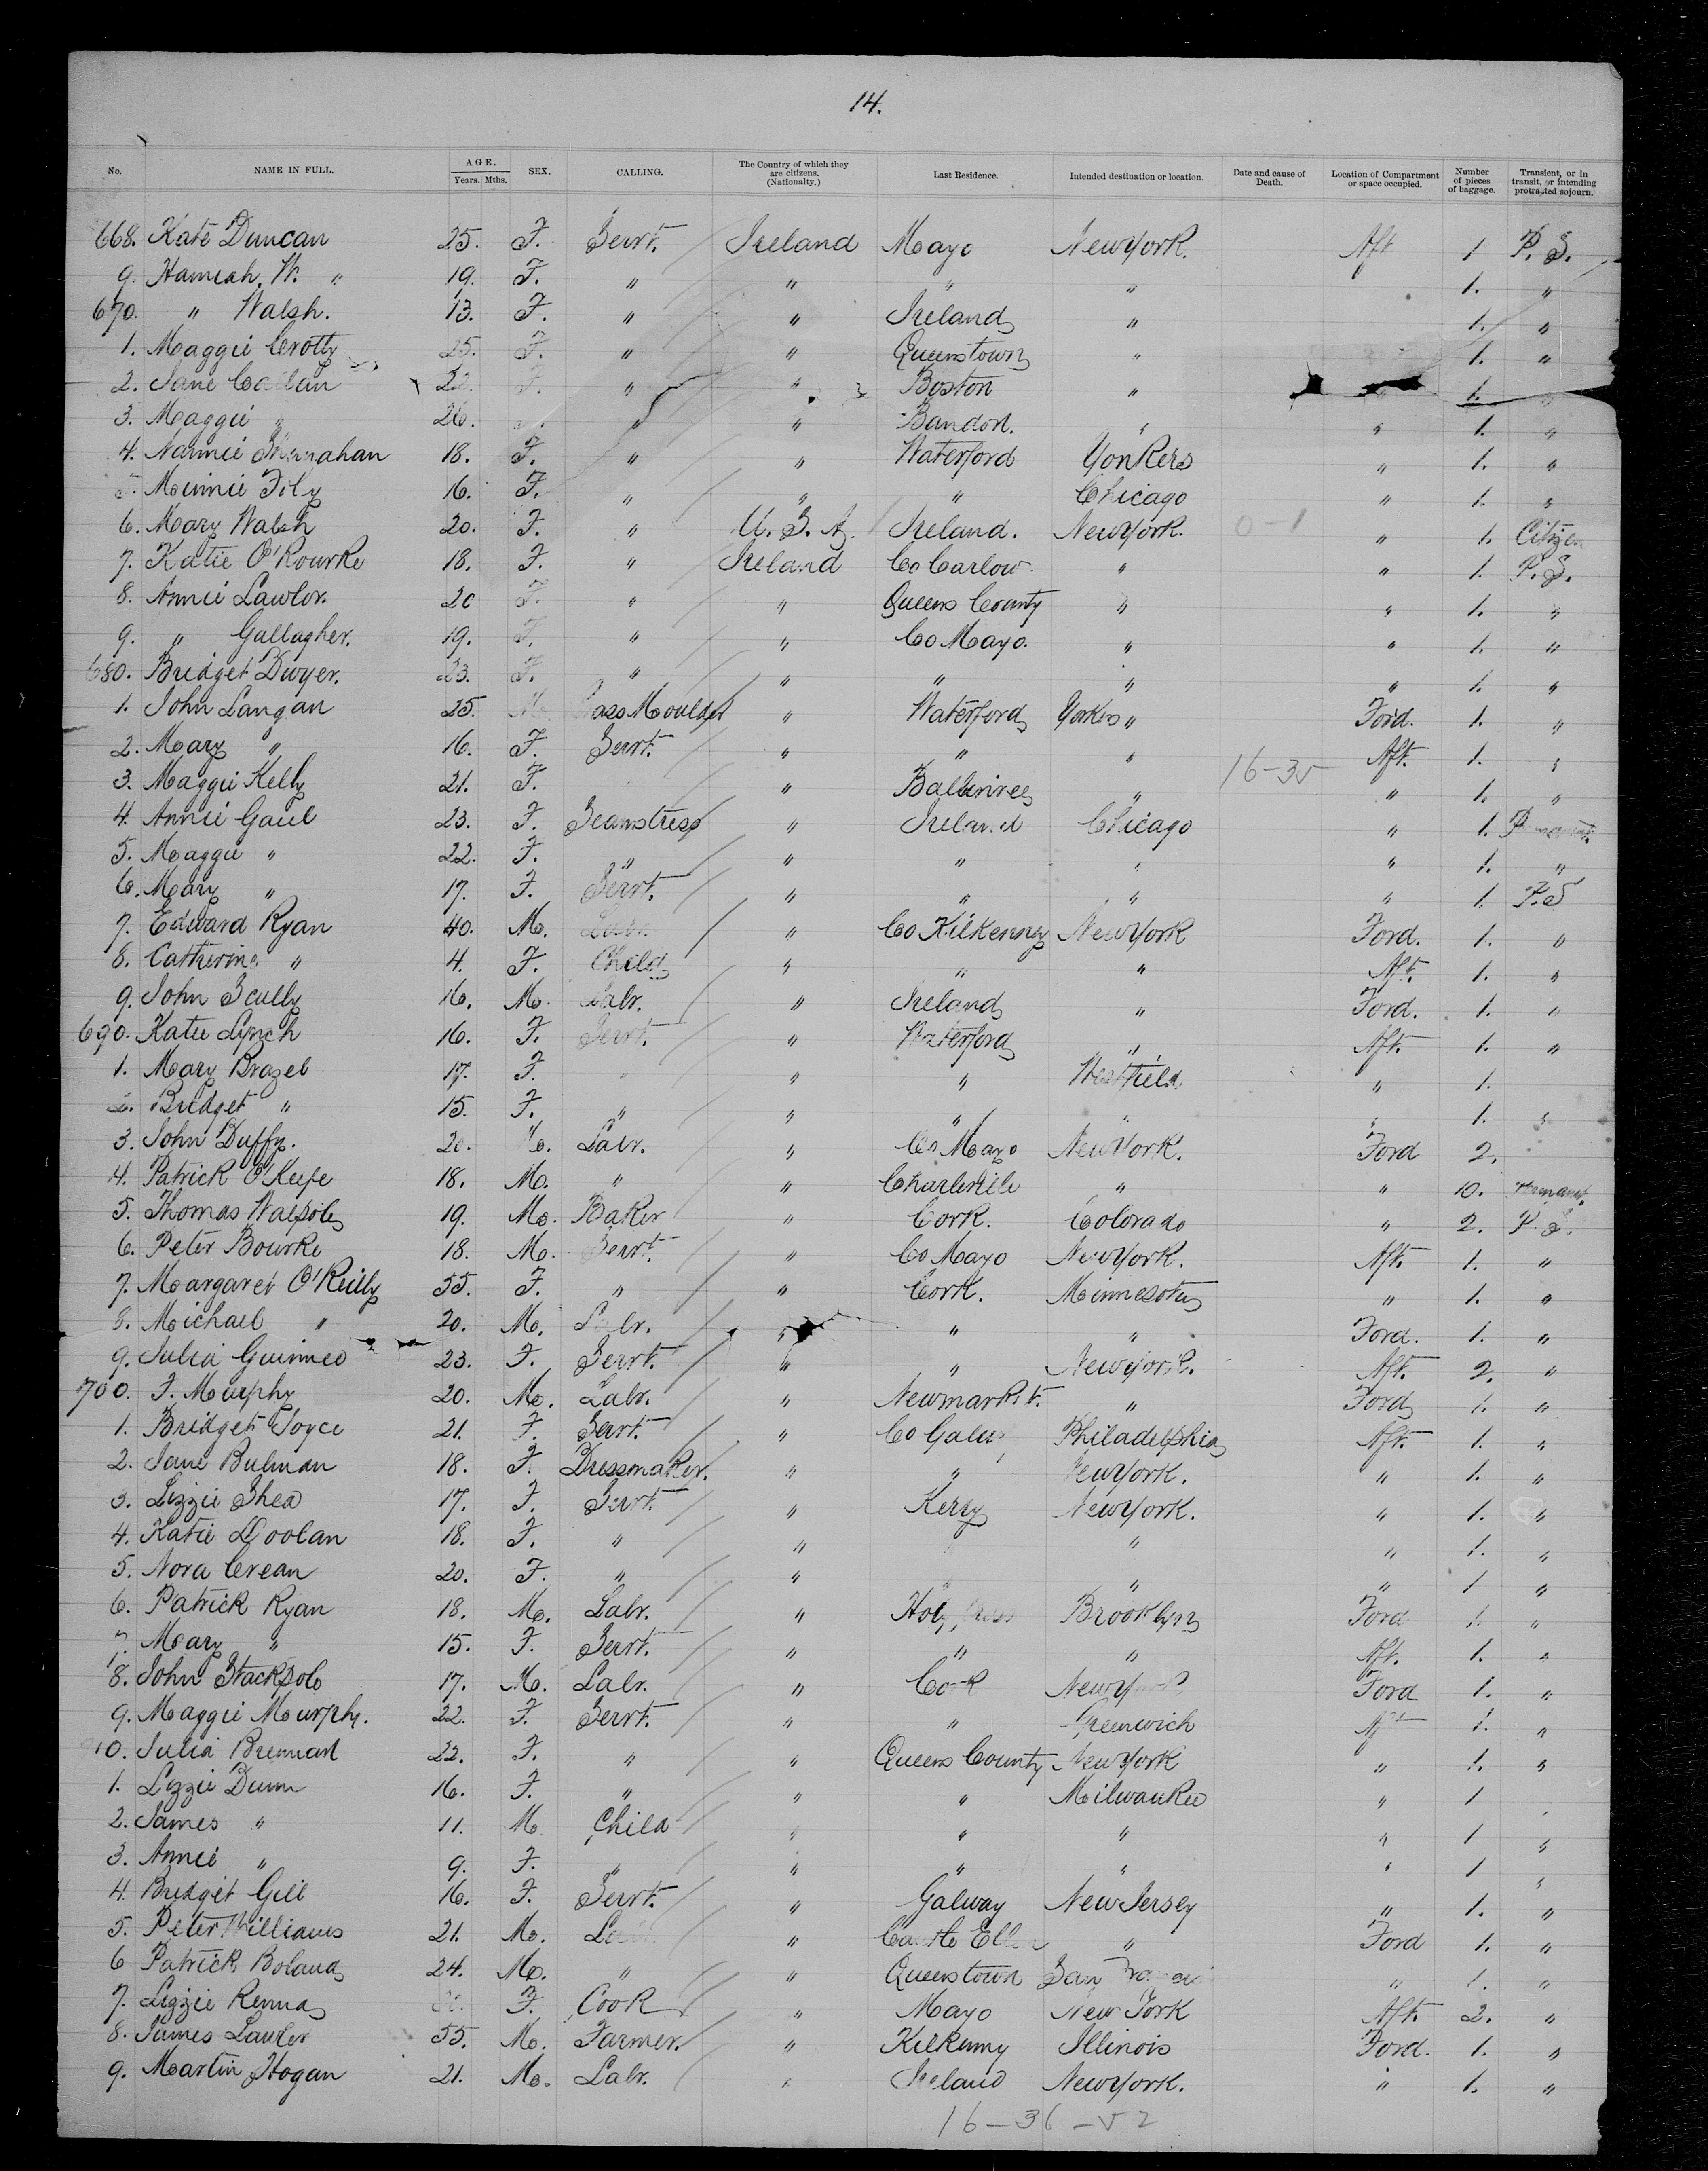 14.
No. NAME IN FULL. AGE. Years. Mths. SEX. CALLING. The Country of which they are citizens. (Nationalty.) Last Residence. Intended destination or location. Date and cause of Death. Location of Compartment or space occupied. Number of pieces of baggage. Transient, or in transit, or intending protracted sojourn.
668. Kate Duncan 25. F. Servt. Ireland Mayo New York. Aft 1 P. S.
9. Hannah W. " 19. F. " " " " 1. "
670. " Walsh. 13. F. " " Ireland " 1. "
1. Maggie Crotty 25. F. " " Queenstown " 1. "
2. Jane F. " " Boston " 1. "
3. Maggie " 26. " " Bandon. " " 1. "
4. Shanahan 18. F. " " Waterford Yonkers " 1. "
5. Minnie 16. F. " " " Chicago " 1. "
6. Mary Walsh 20. F. " U. S. A. Ireland. New York. 0-1 " 1. Citizen
7. Katie O'Rourke 18. F. " Ireland Co Carlow " " 1. P. S.
8. Annie Lawlor. 20 F. " " Queens County " " 1. "
9. " Gallagher. 19. F. " " Co Mayo. " " 1. "
680. Bridget Dwyer. 23. F. " " " " " 1. "
1. John Langan 25. M. Moulder " Waterford Yonkers " Ford. 1. "
2. Mary " 16. F. Servt. " " " Aft. 1. "
3. Maggie Kelly 21. F. " " 16-3 " 1. "
4. Annie Gaul 23. F. Seamstress " Ireland Chicago " 1.
5. Maggie " 22. F. " " " " " 1. "
6. Mary " 17. F. Servt. " " " " 1. P. S
7. Edward Ryan 40. M. Labr. " Co Kilkenney New York Ford. 1. "
8. Catherine " 4. F. Child " " " Aft. 1. "
9. John Scully 16. M. Labr. " Ireland " Ford. 1. "
690. Katie Lynch 16. F. Servt. " Waterford " Aft. 1. "
1. Mary Brazel 17. F. " " " Westfield " 1.
2. Bridget " 15. F. " " " " " 1. "
3. John Duffy. 20. M. Labr. " Co Mayo New York. Ford 2.
4. Patrick O'Keefe 18. M. " " " " 10.
5. Thomas Walpole 19. M. Baker " Cork. Colorado " 2. P. S.
6. Peter Bourke 18. M. Servt. " Co Mayo New York. Aft. 1. "
7. Margaret O'Reilly 55. F. " " Cork. Minnesota " 1. "
8. Michael " 20. M. Labr. " " " Ford. 1. "
9. Julia 23. F. Servt. " " New York. Aft. 2. "
700. F. Murphy 20. M. Labr. " Newmarket. " Ford 1. "
1. Bridget Joyce 21. F. Servt. " Co Galway Philadelphia Aft. 1. "
2. Jane Bulman 18. F. Dressmaker. " " New York. " 1. "
3. Lizzie Shea 17. F. Servt. " Kerry New York. " 1. "
4. Katie Doolan 18. F. " " " " 1. "
5. Nora Crean 20. F. " " " " " 1 "
6. Patrick Ryan 18. M. Labr. " Holy Cross Brooklyn Ford 1. "
7. Mary " 15. F. Servt. " " " Aft. 1. "
8. John Stackpole 17. M. Labr. " Cork New York Ford 1. "
9. Maggie Murphy. 22. F. Servt. " " Greenwich Aft 1. "
710. Julia Brennan 22. F. " " Queens County New York " 1. "
1. Lizzie Dunn 16. F. " " " Milwaukee " 1
2. James " 11. M. Child " " " " 1 "
3. Annie " 9. F. " " " " " 1 "
4. Bridget Gill 16. F. Servt. " Galway New Jersey " 1. "
5. Peter Williams 21. M. Labr. " Castle " Ford 1. "
6 Patrick Boland 24. M. " " Queenstown San " 1. "
7. Lizzie F. Cook " Mayo New York Aft. 2. "
8. James Lawler 55. M. Farmer. " Kilkenny Illinois Ford. 1. "
9. Martin Hogan 21. M. Labr. " Ireland New York. " 1. "
16-36-